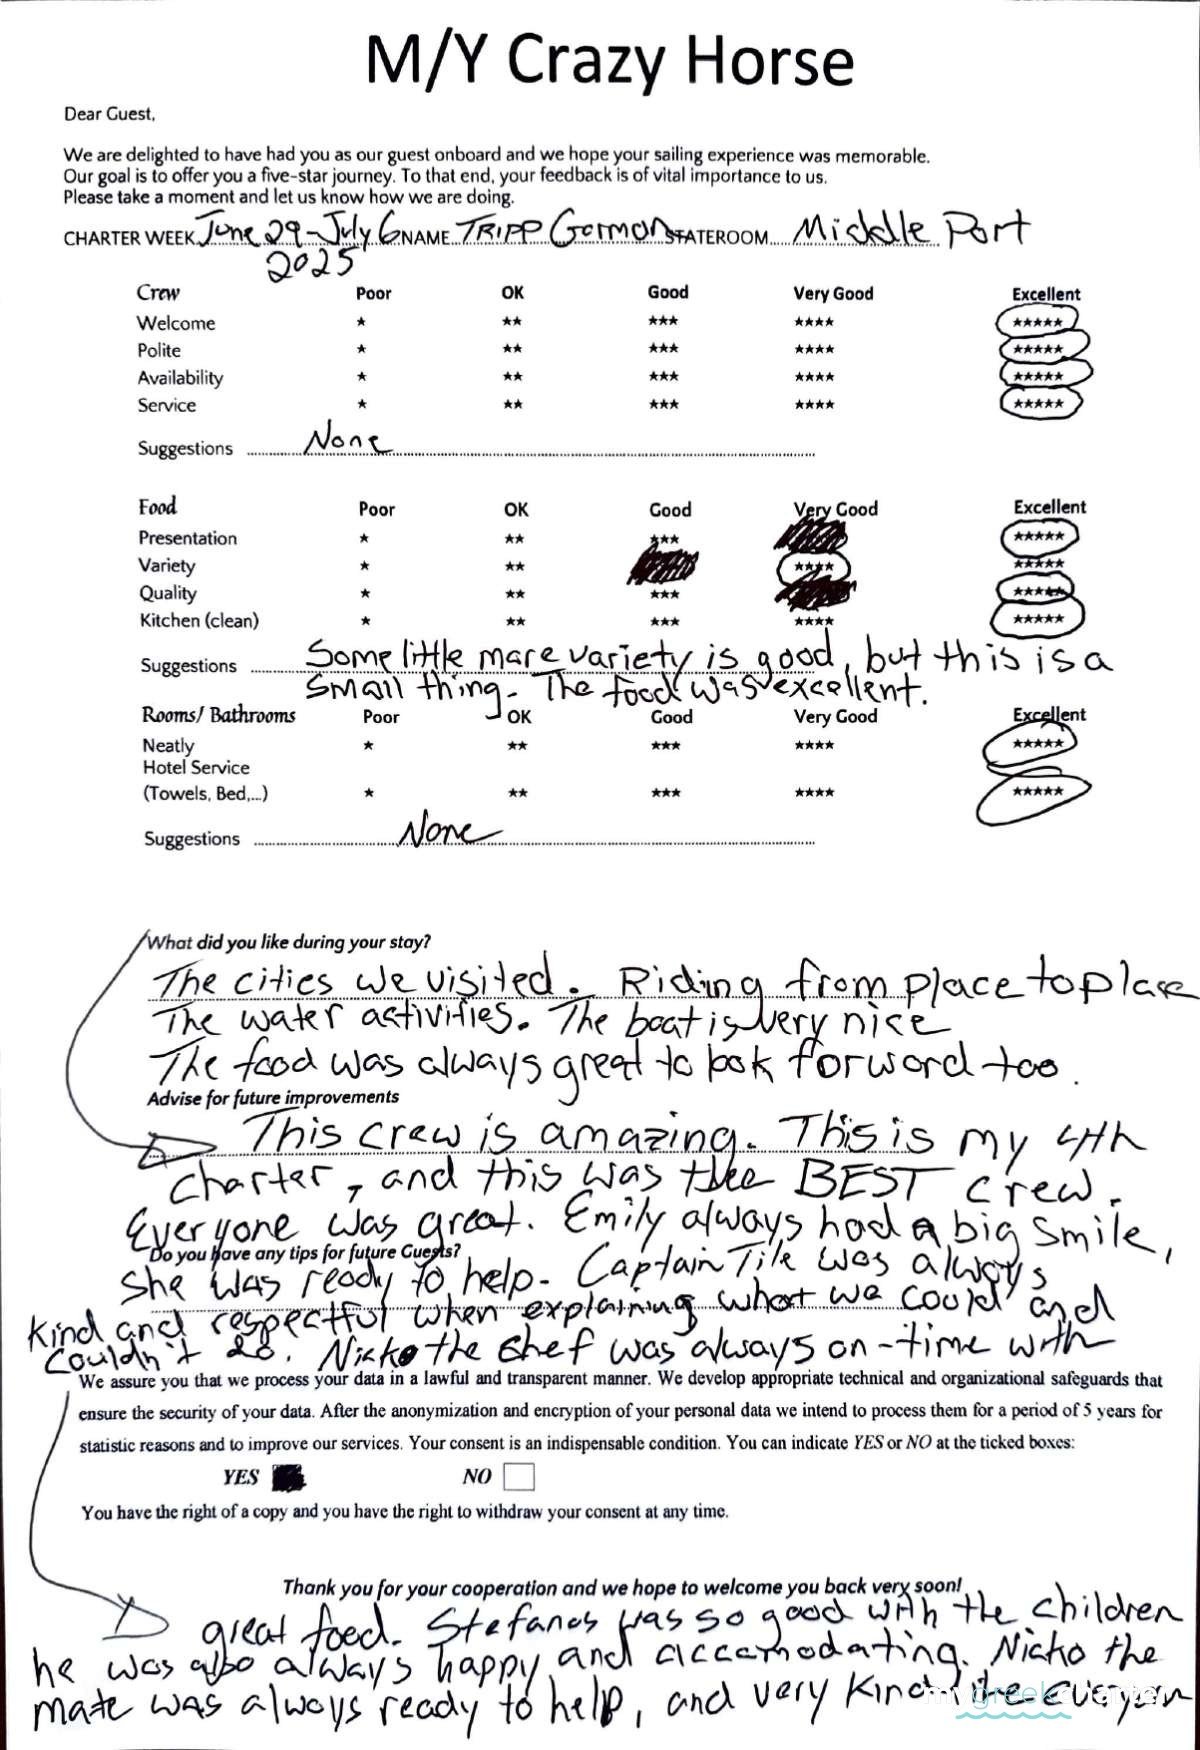 M/Y Crazy Horse
Dear Guest,
We are delighted to have had you as our guest onboard and we hope your sailing experience was memorable.
Our goal is to offer you a five-star journey. To that end, your feedback is of vital importance to us.
Please take a moment and let us know how we are doing.
CHARTER WEEK June 29-July 6 NAME TRIPP Gorman STATEROOM Middle Port
2025
Crew Poor OK Good Very Good Excellent
Welcome ★ ★★ ★★★ ★★★★ ★★★★★
Polite ★ ★★ ★★★ ★★★★ ★★★★★
Availability ★ ★★ ★★★ ★★★★ ★★★★★
Service ★ ★★ ★★★ ★★★★ ★★★★★
Suggestions None
Food Poor OK Good Very Good Excellent
Presentation ★ ★★ ★★★ ★★★★★
Variety ★ ★★ ★★★★ ★★★★★
Quality ★ ★★ ★★★ ★★★★★
Kitchen (clean) ★ ★★ ★★★ ★★★★ ★★★★★
Suggestions Some little more variety is good, but this is a
small thing. The food was excellent.
Rooms/ Bathrooms Poor OK Good Very Good Excellent
Neatly ★ ★★ ★★★ ★★★★ ★★★★★
Hotel Service
(Towels, Bed,...) ★ ★★ ★★★ ★★★★ ★★★★★
Suggestions None
What did you like during your stay?
The cities we visited. Riding from place to place
The water activities. The boat is very nice
The food was always great to look forword too.
Advise for future improvements
This crew is amazing. This is my 4th
charter, and this was the BEST crew.
Everyone was great. Emily always had a big smile,
Do you have any tips for future Guests?
she was ready to help. Captain Tile was always
kind and respectful when explaining what we could and
couldn't do. Nicko the chef was always on-time with
We assure you that we process your data in a lawful and transparent manner. We develop appropriate technical and organizational safeguards that
ensure the security of your data. After the anonymization and encryption of your personal data we intend to process them for a period of 5 years for
statistic reasons and to improve our services. Your consent is an indispensable condition. You can indicate YES or NO at the ticked boxes:
YES NO
You have the right of a copy and you have the right to withdraw your consent at any time.
Thank you for your cooperation and we hope to welcome you back very soon!
great food. Stefanos was so good with the children
he was also always happy and accamodating. Nicko the
mate was always ready to help, and very kind
my greek charter